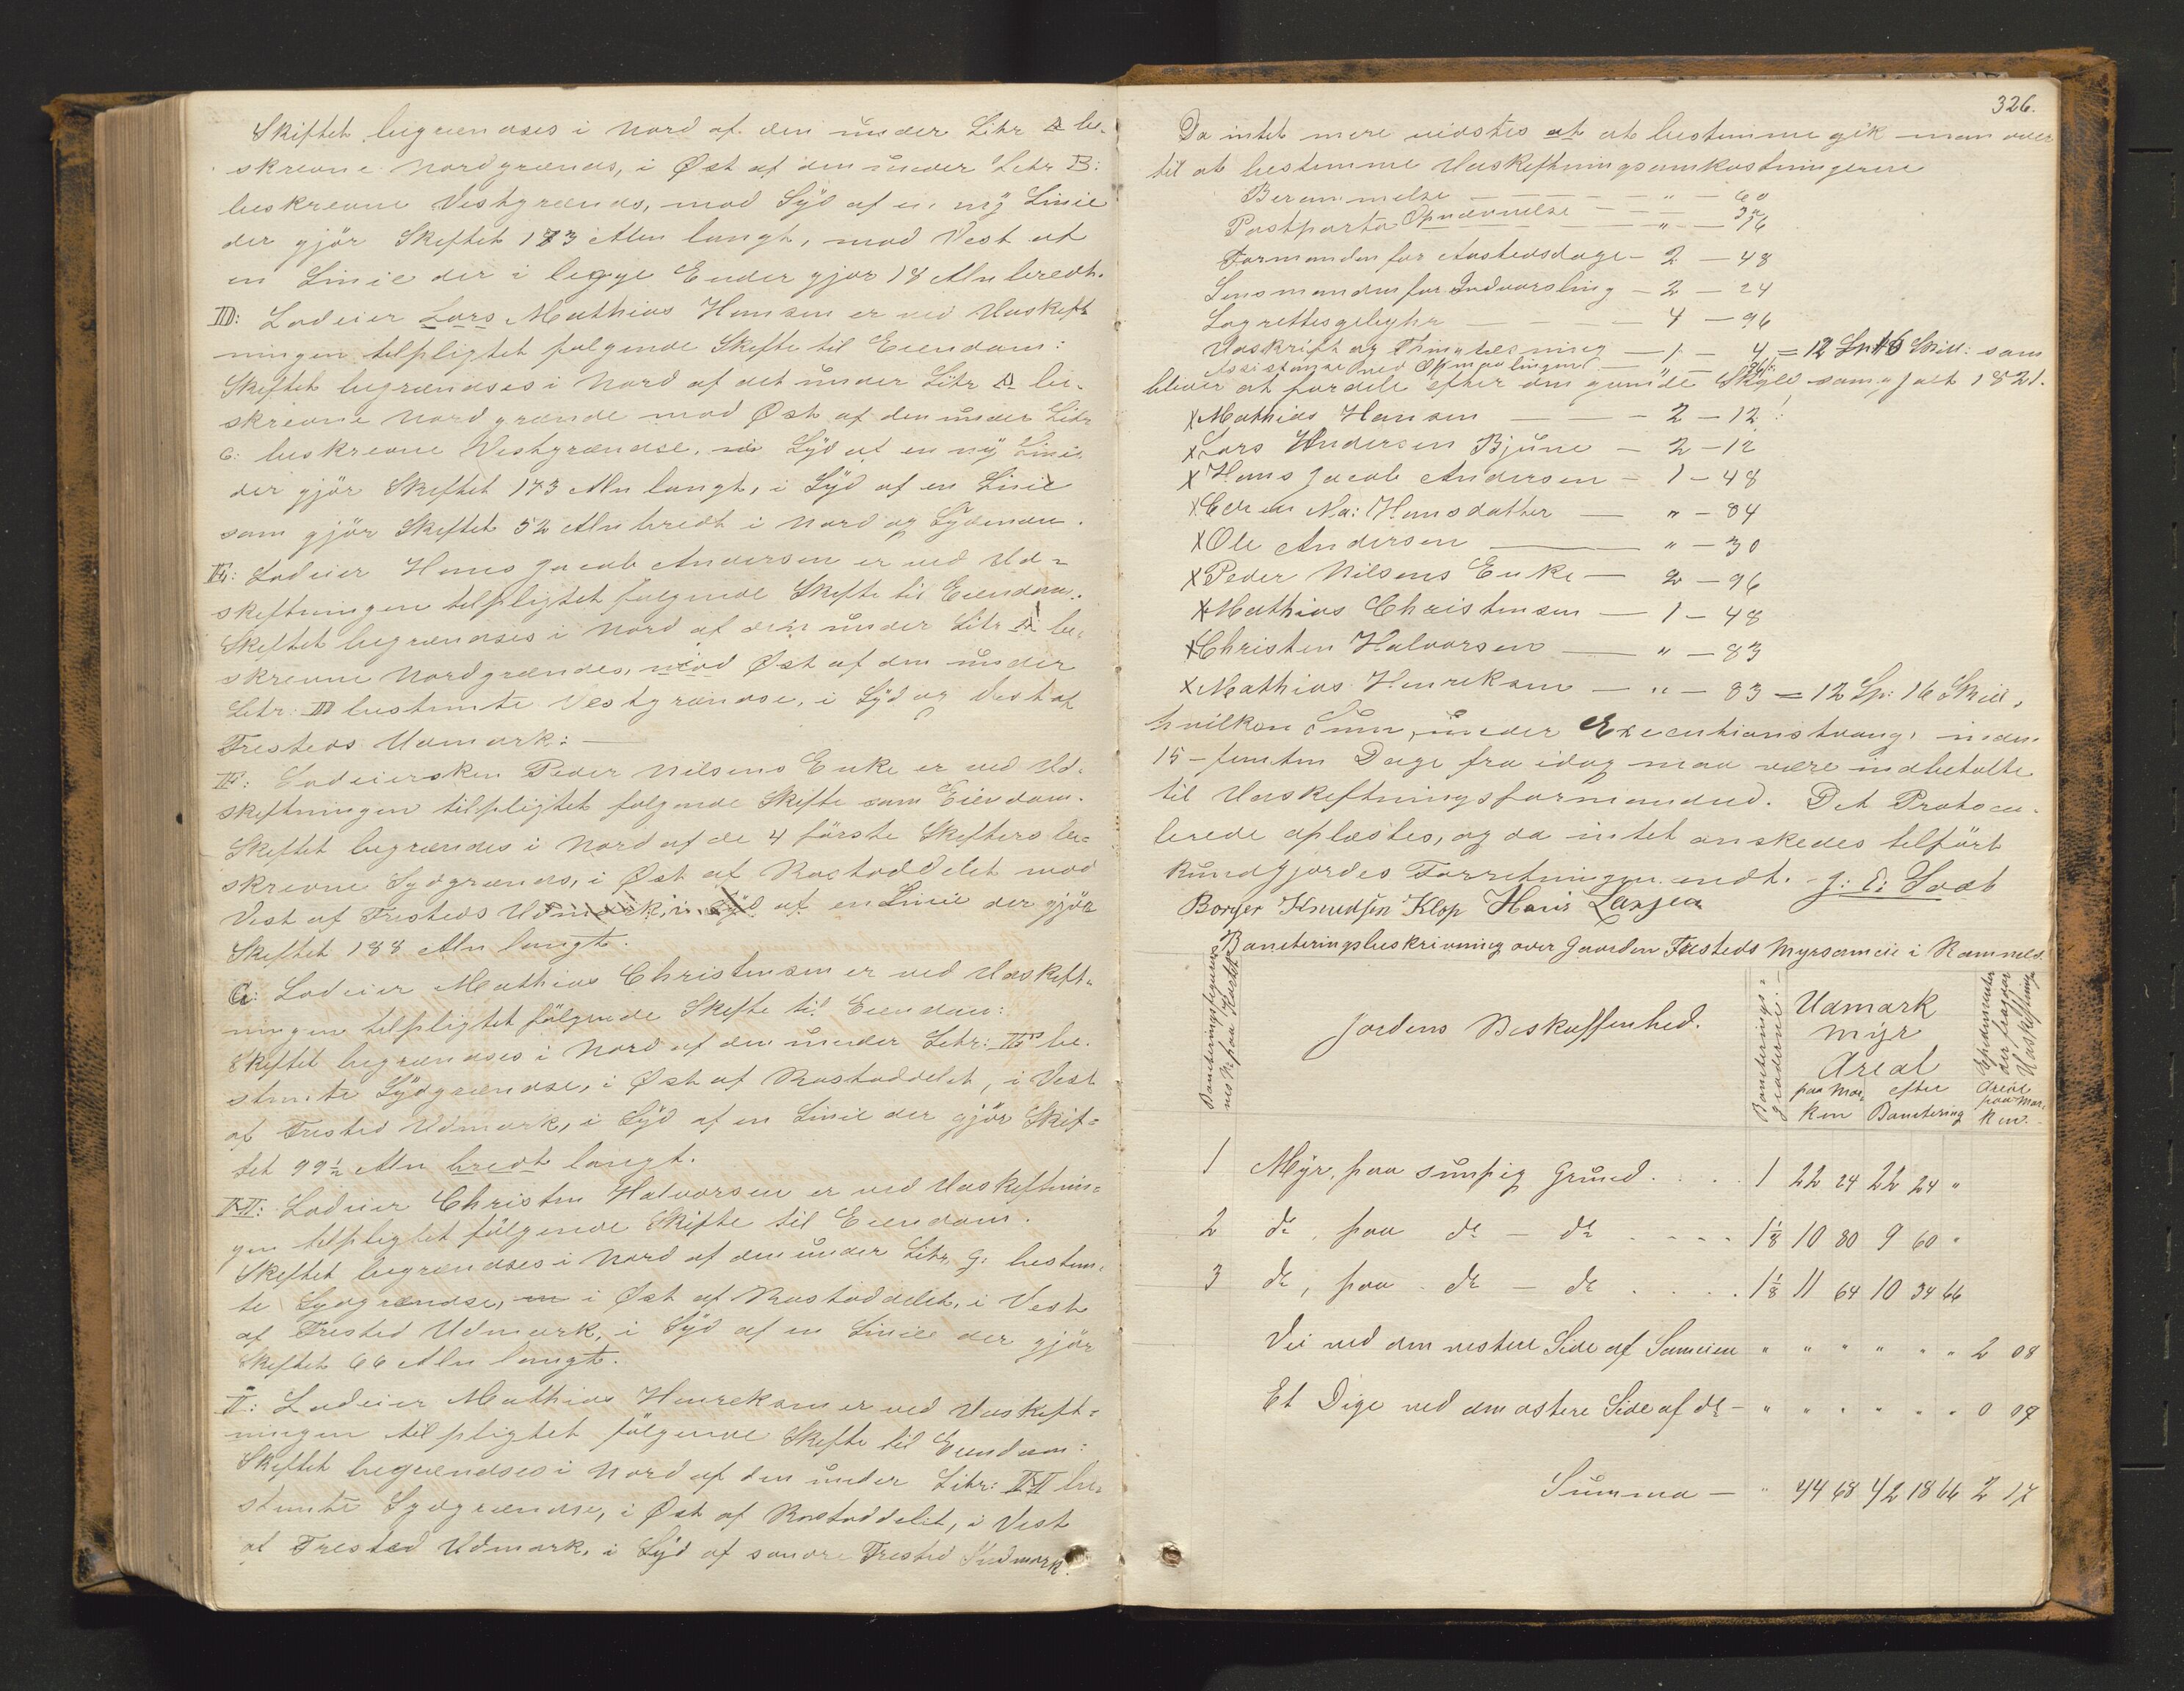 Skiftet begrændses i Nord af den under Litr A be-
skrevne Nordgrænds, i Øst af den under Letr B:
beskrevne Vestgrænds, mod Syd af en ny Linie
der gjör Skeftet 173 Alen langt, mod Vest af
en Linie der i begge Ender gjør 18 Aln bredt.
D: Lodeier Lars Mathias Hansen er ved Udskeft
ningen tilpligtet følgende Skefte til Eiendom:
Skeftet begrændses i Nord af det under Litr A be-
skrevne Nordgrændse mod Øst af den under Litr
C: beskrevne Vestgrændse, Syd af en ny Linie
der gjör Skeftet 173 Aln langt, i Syd af en Linie
som gjör Skeftet 52 Aln bredt i Nord og Sydenden.
E: Lodeier Hans Jacob Andersen er ved Ud-
skeftningen tilpligtet følgende Skefte til Eiendom.
Skeftet begrændses i Nord af den under Litr A be-
skrevne Nordgrændes, mod Øst af den under
Letr: D bestemte Vestgrændse, i Syd og Vest af
Fresteds Udmark: —
F: Lodeiersken Peder Nilsens Enke er ved Ud-
skeftningen tilpligtet følgende Skifte som Eiendom.
Skeftet begrændes i Nord af de 4 förste Skefters be-
skrevne Sydgrænds, i Øst af Rostaddelet mod
Vest af Fresteds Udmark, i Syd af en Linie der gjör
Skeftet 188 Aln langt.
G: Lodeier Mathias Christensen er ved Udskeft-
ningen tilpligtet fölgende Skefte til Eiendom:
Skeftet begrændses i Nord af den under Letr: F be-
stemte Sydgrændse, i Øst af Rostaddelet, i Vest
af Frested Udmark, i Syd af en Linie der gjör Skif-
tet 99½ Aln bredt langt.
H: Lodeier Christen Halvorsen er ved Udskeftnin-
gen tilpligtet fölgende Skifte til Eiendom.
Skeftet begrændses i Nord af den under Litr. G. bestem-
te Sydgrændse, i Øst af Rostaddelet, i Vest
af Frested Udmark, i Syd af en Linie der gjör
Skeftet 66 Aln langt.
I: Lodeier Mathias Henreksen er ved Udskeft-
ningen tilpligtet fölgende Skefte til Eiendom:
Skeftet begrændses i Nord af den under Litr: H be-
stemte Sydgrændse, i Øst af Rostaddelet, i Vest
af Frested Udmark, i Syd af samme Frested Udmark.
326.
Da intet mere vidstes at at bestemme gik man over
til at bestemme Udskeftningsomkostningerne
Berammelse — " — 60
Postporto Opnævnelse — " — 36
Formanden for Aastedsdage — 2 — 48
Lensmanden for Indvarsling — 2 — 24
Lagrettesgebyhr — 4 — 96
Udskrift og Thinglæsning — 1 — 4 = 12 Sp 16 Skill: som
Assistanse ved Opmaalingen
bliver at fordele efter den gamle Skyld samfælt 1821.
x Mathias Hansen — 2 — 12
x Lars Andersen Bjune — 2 — 12
x Hans Jacob Andersen — 1 — 48
x Edren Ma: Hansdatter — " — 84
x Ole Andersen — " — 30
x Peder Nilsens Enke — 2 — 96
x Mathias Christensen — 1 — 48
x Christen Halvorsen — " — 83
x Mathias Henreksen — " — 83 = 12 Sp: 16 Skill,
hvilken Sum, under Executionstvang, inden
15 – femten Dage fra idag maa være indbetalte
til Udskeftningsformanden. Det Protocol-
lerede oplæstes, og da intet önskedes tilfört
kundgjordes Forretningen endt. J: E: Lodt
Borger Knudsen Klop Hans Laxjea
Boneteringsbeskrivning over Gaarden Fresteds Myrsameie i Ramnels
Boneteringsfigurer-
nes No paa Kartet
Jordens Beskaffenhed.
Boneterings-
graderne:
Udmark
Myr
Areal
paa Mar-
ken
efter
Bonetering
der fragaar
Udskeftning
Areal
paa Mar-
ken.
1 Myr, paa sumpig Grund . . . 1 22 24 22 24 "
2 do, paa do — do . . . . 1⅛ 10 80 9 60 "
3 do, paa do — do . . . . 1⅛ 11 64 10 34 66
Vei ved den vestere Side af Sameien " " " " " " 2 08
Et Dige ved den østere Side af do — " " " " " " 0 09
Summa — " 44 68 42 18 66 2 17